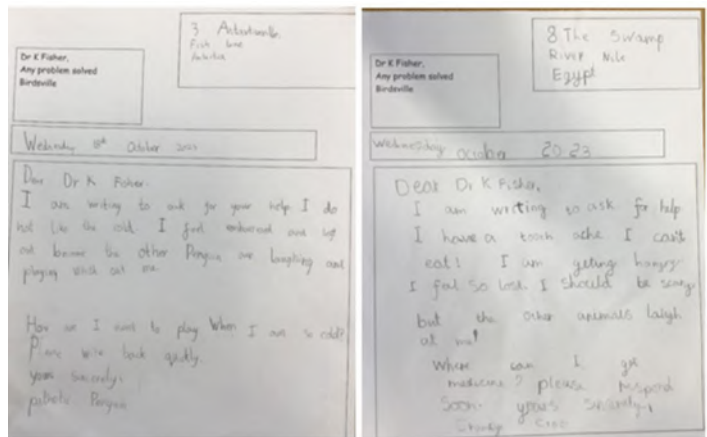 3
Fish Lane
Dr K Fisher,
Any problem solved
Birdsville
Wednesday October
Dear Dr K Fisher.
I am writing to ask for your help I do
not like the cold. I feel and left
out because the other Penguin are laughing and
playing with out me.
How am I to play When I am so cold?
Please write back quickly.
yours sincerely,
Penguin
8 The Swamp
River Nile
Egypt
Dr K Fisher,
Any problem solved
Birdsville
Wednesday October 2023
Dear Dr K Fisher,
I am writing to ask for help
I have a tooth ache I can't
eat! I am geting hungry.
I feel so lost. I should be scary
but the other animals laugh
at me!
Where can I get
medicine? please respond
Soon. yours
Croc